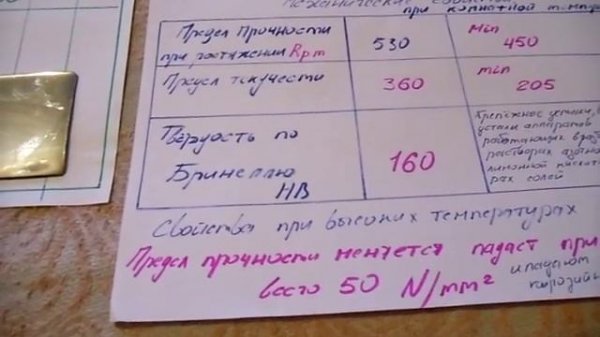 при комнатной
Предел Прочности
при растяжении Rpm
530
Min
450
Предел текучести
360
min
205
Твёрдость по
Бринеллю
HB
160
Крепёжное
аппаратов
работающих
растворах
лимонной
рах солей
Свойства при высоких температурах
Предел прочности меняется падает при
всего 50 N/mm²
и падают